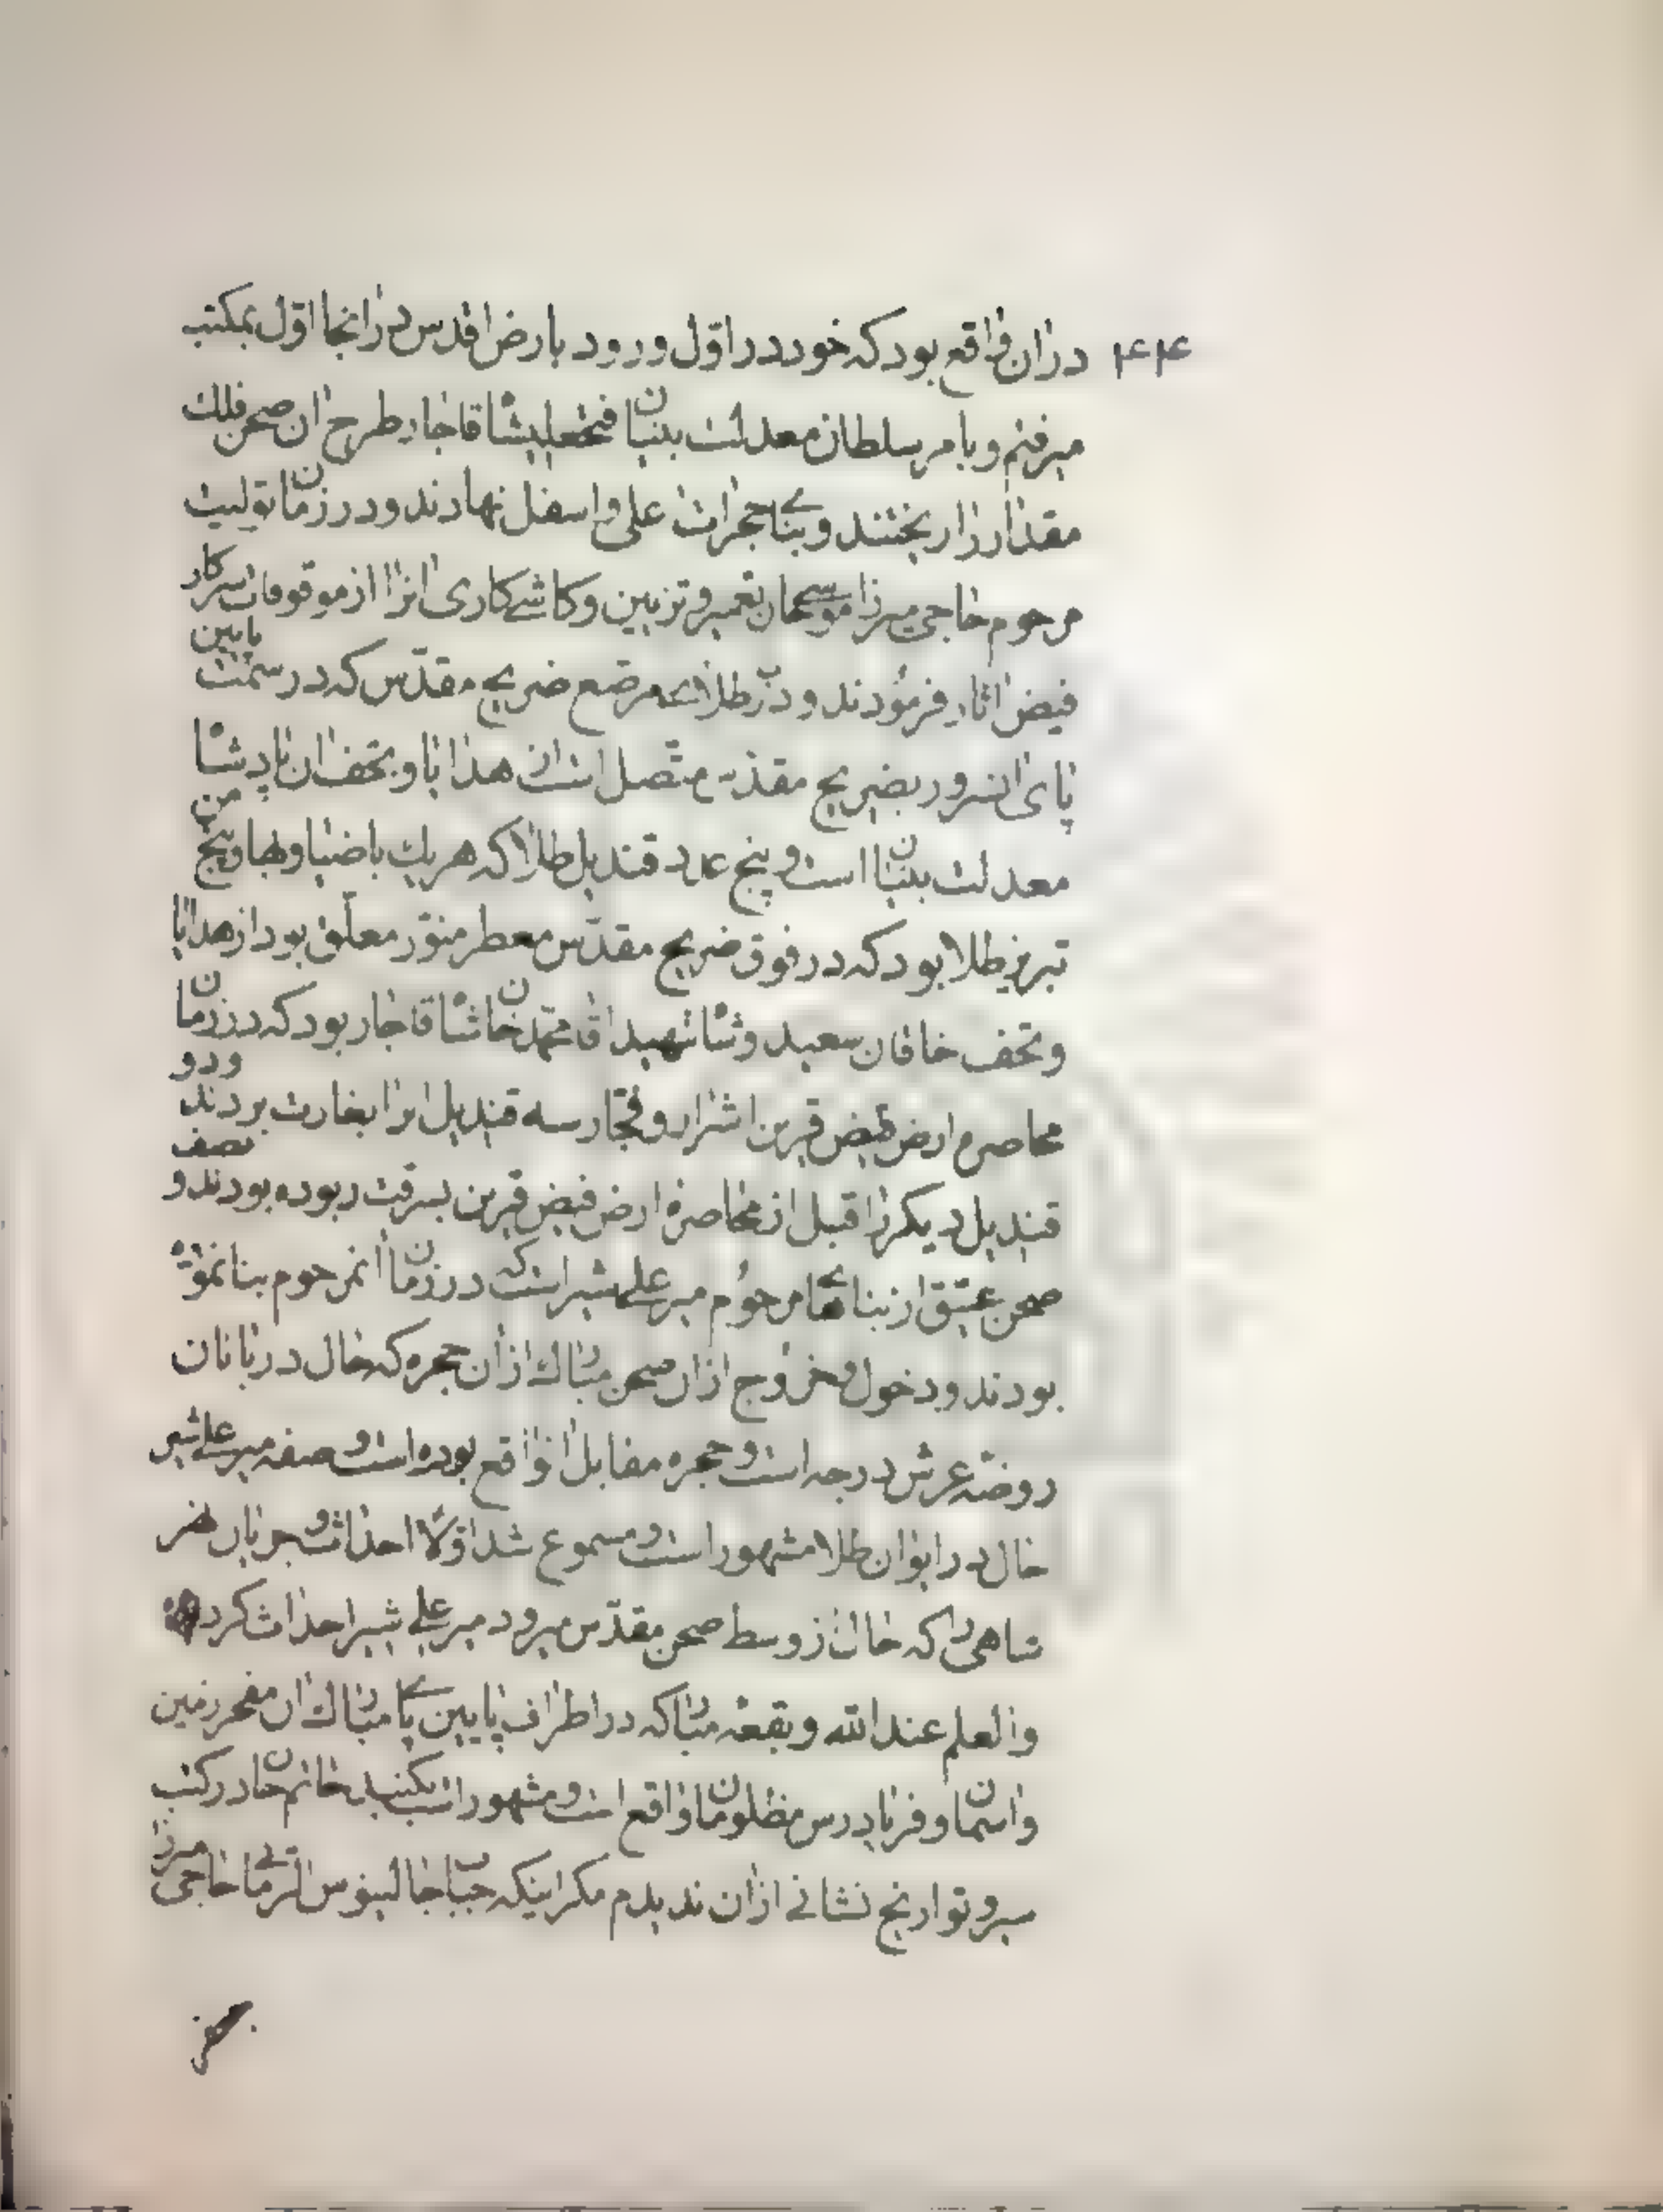 ۴۴ دران واقع بود که خود در اوّل ورود بارض اقدس در انجا اوّل بمکتب
میرفتم و بامر سلطان معدلت بنیان فتحعلیشاه قاجار طرح ان صحن فلك
مقدار را ریختند و بنای حجرات اعلی و اسفل نهادند و در زمان تولیت
مرحوم حاجی میرزا موسیخان تعمیر و تزیین و کاشی کاری انرا از موقوفات سرکار
فیض اثار فرمودند و درب طلای مرصع ضریح مقدّس که در سمت پایین
پای انسرور بضریح مقدس متّصل است از هدایا و تحف ان پادشاه
معدلت بنیان است و پنج عدد قندیل طلا که هریك با ضیا و بها و پنج من
تبریز طلا بود که در فوق ضریح مقدّس معطر منوّر معلّق بود از هدایا
و تحف خاقان سعید و شاه شهید اقا محمّد خان شاه قاجار بود که در زمان
محاصره ارض فیض قرین اشرار و فجّار سه قندیل انرا بغارت بردند و دو
قندیل دیکر را قبل از محاصره ارض فیض قرین بسرقت ربوده بودند و نصف
صحن عتیق از بناهای مرحوم میر علی شیر است که در زمان انمرحوم بنا نموده
بودند و دخول و خروج ازان صحن مبارك از ان حجره که حال دربانان
روضهٔ عرش درجه است و حجره مقابل ان واقع بوده است و صفه میر علی شیر
حال در ایوان طلا مشهور است و مسموع شد اوّلا احداث و جریان نهر
شاهی را که حال از وسط صحن مقدّس میرود میر علی شیر احداث کرده
والعلم عندالله و بقعهٔ مبارکه در اطراف پایین پای مبارك ان مفخر زمین
و اسمان و فریادرس مظلومان واقع است و مشهور است بکنبد خانم خان در کتب
سیر و تواریخ نشانی ازان ندیدم مکر اینکه جناب جالینوس الزمانی حاجی میرزا